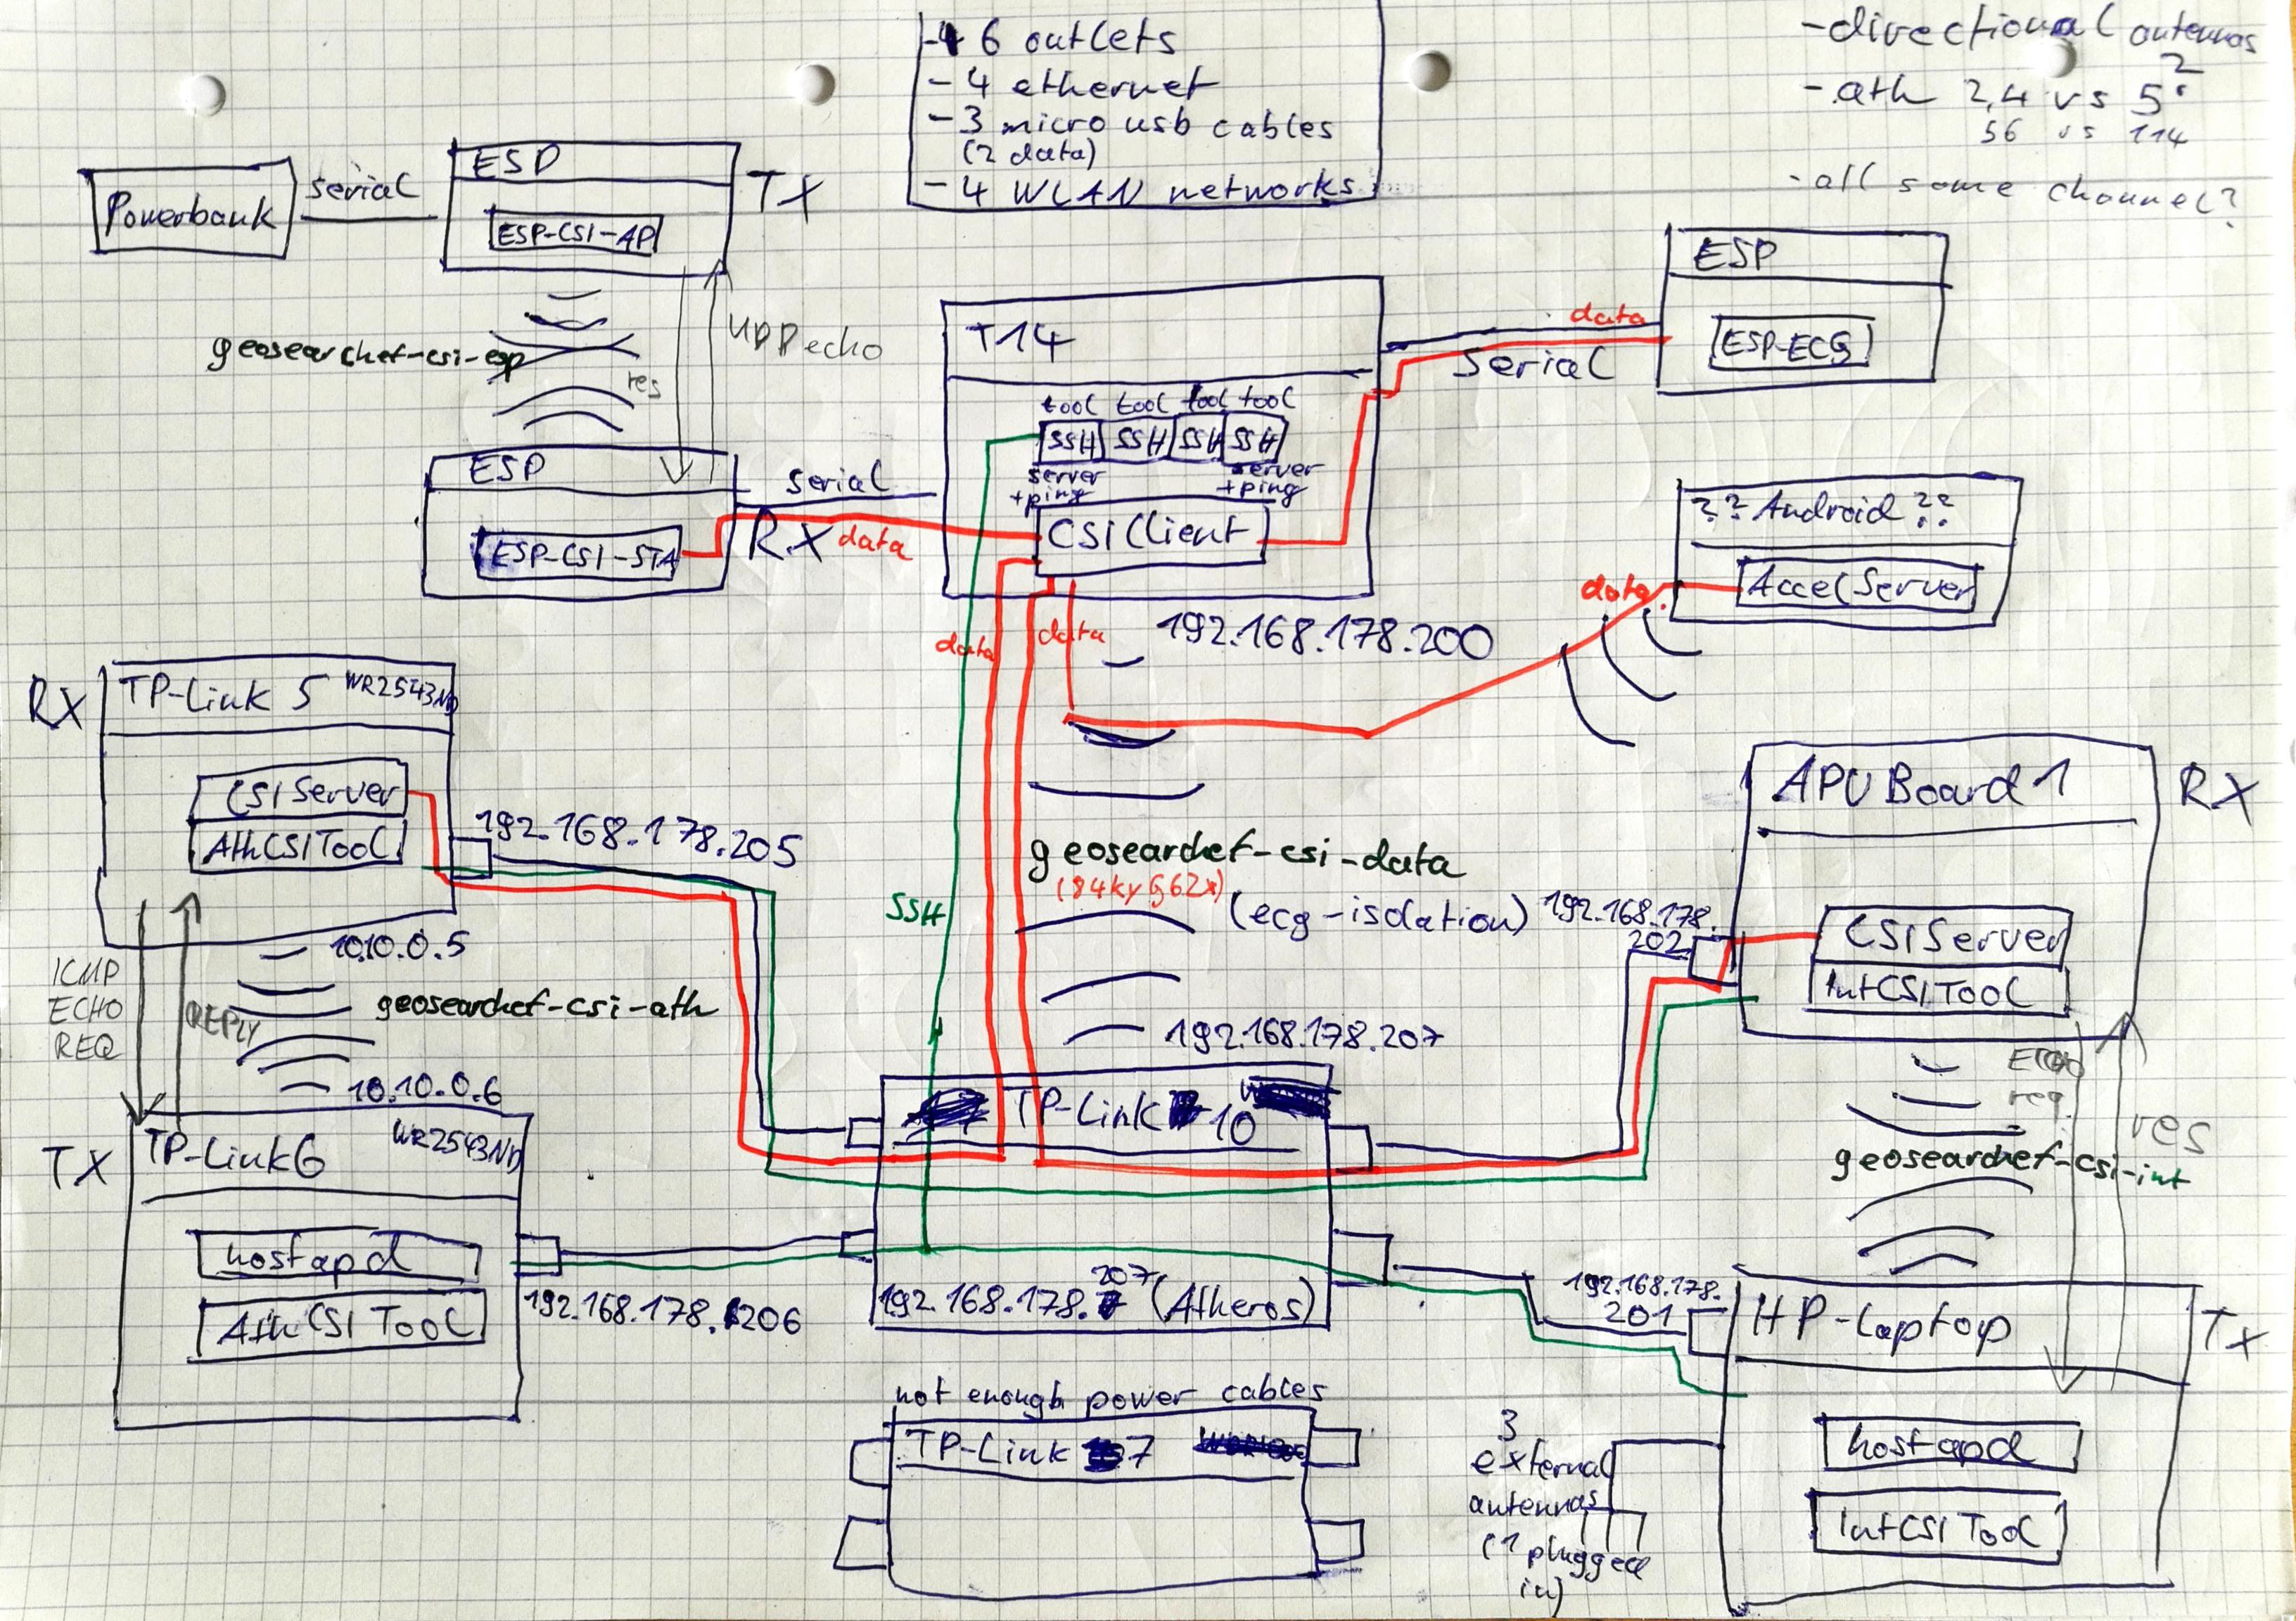 - 6 outlets
- 4 ethernet
- 3 micro usb cables
(2 data)
- 4 WLAN networks
- directional antennas
- ath 2,4 vs 5?
56 vs 114
- all same channel?
Powerbank
serial
ESP
ESP-CSI-AP
TX
geosearchef-csi-esp
res
UDP echo
ESP
ESP-CSI-STA
serial
RX
data
T14
tool tool tool tool
SSH SSH SSH SSH
server
+ping
server
+ping
CSIClient
data
serial
ESP
ESP-ECG
?? Android ??
AccelServer
data
data
data
192.168.178.200
RX
TP-Link 5 WR2543ND
CSIServer
AthCSITool
192.168.178.205
10.10.0.5
ICMP
ECHO
REQ
REPLY
geosearchef-csi-ath
10.10.0.6
SSH
geosearchef-csi-data
(ecg-isolation)
192.168.178.207
APU Board 1
RX
192.168.178.
202
CSIServer
IntCSITool
Echo
req
res
geosearchef-csi-int
TX
TP-Link 6 WR2543ND
hostapd
AthCSITool
192.168.178.206
TP-Link 10
207
192.168.178. (Atheros)
192.168.178.
201
HP-Laptop
TX
hostapd
IntCSITool
3
external
antennas
(1 plugged
in)
not enough power cables
TP-Link 7